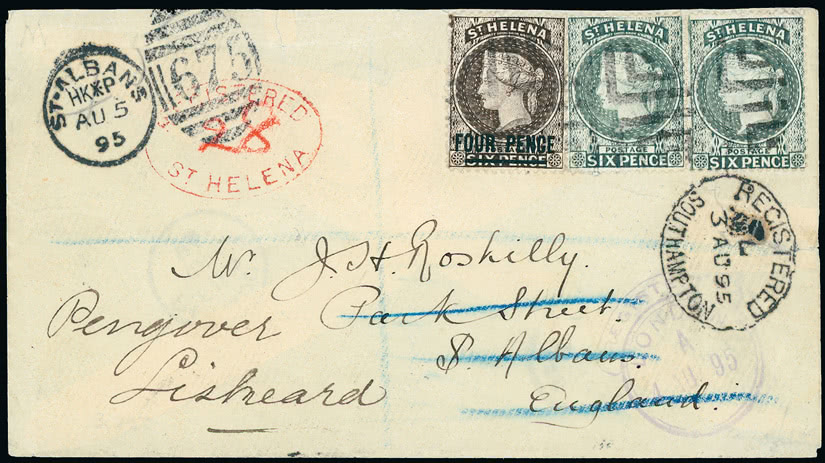 ST. HELENA
FOUR PENCE
SIX PENCE
ST. HELENA
POSTAGE
SIX PENCE
ST. HELENA
POSTAGE
SIX PENCE
ST. ALBANS
HK*P
AU 5
95
675
REGISTERED
28
ST HELENA
REGISTERED
3 AU 95
SOUTHAMPTON
Mr. J. H. Roskilly.
Pengover Park Street.
Liskeard St. Albans.
England.
A
95